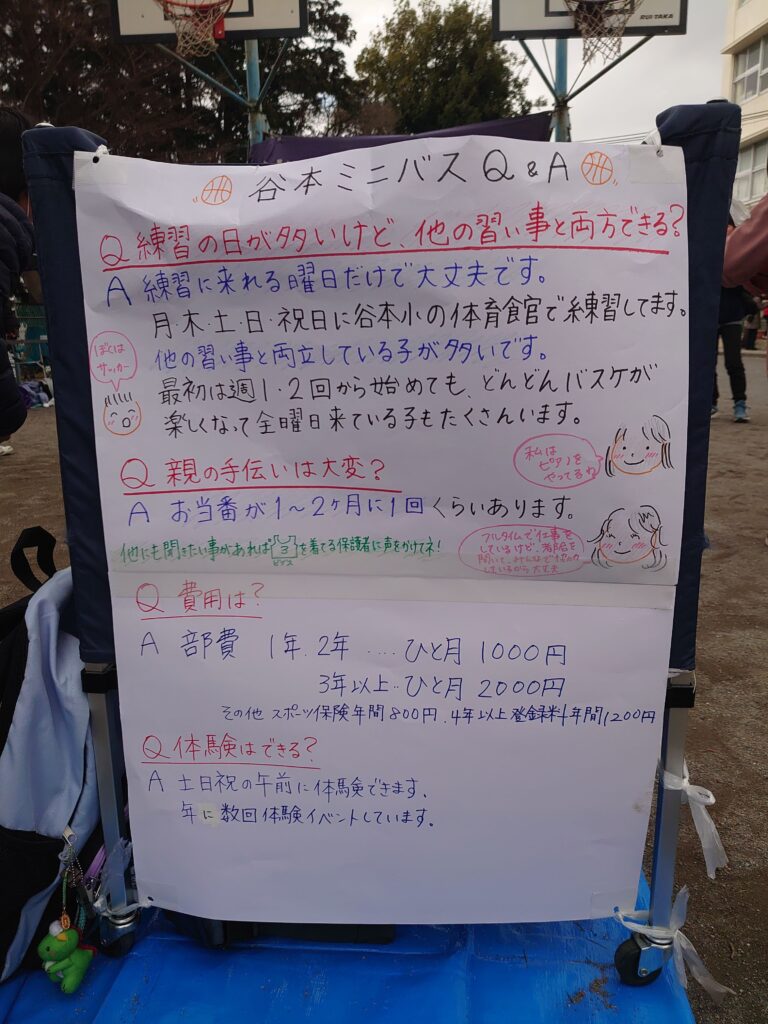 RUITAKA
谷本ミニバス Q & A
Q 練習の日が多いけど、他の習い事と両方できる?
A 練習に来れる曜日だけで大丈夫です。
月・木・土・日・祝日に谷本小の体育館で練習してます。
他の習い事と両立している子が多いです。
ぼくは
サッカー
最初は週1・2回から始めても、どんどんバスケが
楽しくなって全曜日来ている子もたくさんいます。
私は
ピアノを
やってるね
Q 親の手伝いは大変?
A お当番が1〜2ヶ月に1回くらいあります。
他にも聞きたい事があればビブスを着てる保護者に声をかけてネ!
フルタイムで仕事を
しているけど、
しているから大丈夫
Q 費用は?
A 部費 1年、2年 ‥‥ ひと月 1000円
3年以上‥ひと月 2000円
その他 スポーツ保険年間800円、4年以上登録料年間1200円
Q 体験はできる?
A 土日祝の午前に体験できます、
年に数回体験イベントしています。